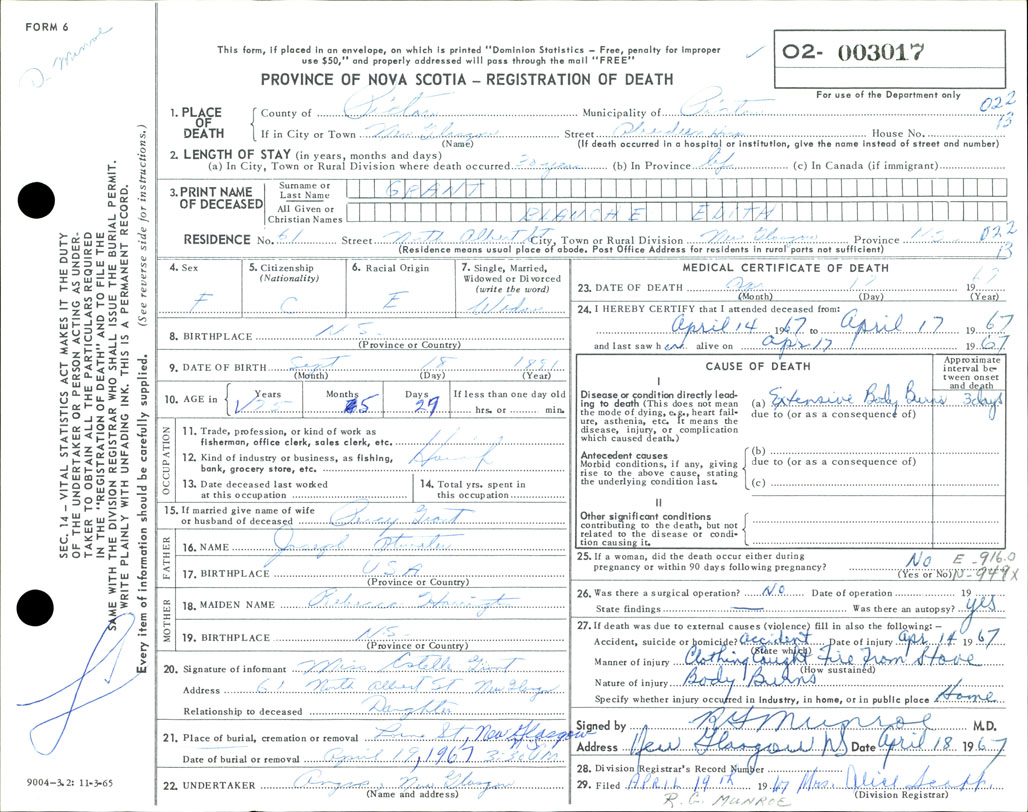 FORM 6
This form, if placed in an envelope, on which is printed "Dominion Statistics – Free, penalty for improper
use $50," and properly addressed will pass through the mail "FREE"
PROVINCE OF NOVA SCOTIA – REGISTRATION OF DEATH
02- 003017
For use of the Department only
022
13
1. PLACE OF DEATH
County of Pictou Municipality of Pictou
If in City or Town New Glasgow Street House No.
(Name) (If death occurred in a hospital or institution, give the name instead of street and number)
2. LENGTH OF STAY (in years, months and days)
(a) In City, Town or Rural Division where death occurred 30 years (b) In Province life (c) In Canada (if immigrant)
3. PRINT NAME OF DECEASED
Surname or Last Name GRANT
All Given or Christian Names BLANCHE EDITH
RESIDENCE No. 61 Street North Albert St City, Town or Rural Division New Glasgow Province N.S. 022
13
(Residence means usual place of abode. Post Office Address for residents in rural parts not sufficient)
4. Sex F
5. Citizenship (Nationality) C
6. Racial Origin E
7. Single, Married, Widowed or Divorced (write the word) Widow
8. BIRTHPLACE N.S.
(Province or Country)
9. DATE OF BIRTH Sept 18 1891
(Month) (Day) (Year)
10. AGE in Years 75 Months 5 Days 29 If less than one day old hrs. or min.
OCCUPATION
11. Trade, profession, or kind of work as
fisherman, office clerk, sales clerk, etc.
12. Kind of industry or business, as fishing,
bank, grocery store, etc.
13. Date deceased last worked
at this occupation
14. Total yrs. spent in
this occupation
15. If married give name of wife
or husband of deceased Percy Grant
FATHER
16. NAME Joseph
17. BIRTHPLACE U.S.A
(Province or Country)
MOTHER
18. MAIDEN NAME Rebecca
19. BIRTHPLACE N.S.
(Province or Country)
20. Signature of informant Miss Estelle Grant
Address 61 North Albert St New Glasgow
Relationship to deceased Daughter
21. Place of burial, cremation or removal St, New Glasgow
Date of burial or removal April 19, 1967 3:30 PM
22. UNDERTAKER New Glasgow
(Name and address)
MEDICAL CERTIFICATE OF DEATH
23. DATE OF DEATH 17 1967
(Month) (Day) (Year)
24. I HEREBY CERTIFY that I attended deceased from:
April 14 1967 to April 17 1967
and last saw her alive on Apr 17 1967
CAUSE OF DEATH
Approximate interval between onset and death
I
Disease or condition directly leading to death (This does not mean the mode of dying, e.g., heart failure, asthenia, etc. It means the disease, injury, or complication which caused death.)
(a) Extensive Body Burns 3 days
due to (or as a consequence of)
Antecedent causes
Morbid conditions, if any, giving rise to the above cause, stating the underlying condition last.
(b)
due to (or as a consequence of)
(c)
II
Other significant conditions contributing to the death, but not related to the disease or condition causing it.
25. If a woman, did the death occur either during
pregnancy or within 90 days following pregnancy? No
(Yes or No)
E-916.0
N-949X
26. Was there a surgical operation? No Date of operation 19
State findings — Was there an autopsy? yes
27. If death was due to external causes (violence) fill in also the following: –
Accident, suicide or homicide? Accident Date of injury Apr 14 1967
(State which)
Manner of injury Clothing Caught Fire From Stove
(How sustained)
Nature of injury Body Burns
Specify whether injury occurred in industry, in home, or in public place Home
Signed by R G Munroe M.D.
Address New Glasgow NS Date April 18 1967
28. Division Registrar's Record Number
29. Filed APRIL 19TH 1967 Mrs. Alice
(Division Registrar)
R.G. MUNROE
SEC. 14 – VITAL STATISTICS ACT MAKES IT THE DUTY
OF THE UNDERTAKER OR PERSON ACTING AS UNDER-
TAKER TO OBTAIN ALL THE PARTICULARS REQUIRED
IN THE "REGISTRATION OF DEATH" AND TO FILE THE
SAME WITH THE DIVISION REGISTRAR WHO SHALL ISSUE THE BURIAL PERMIT.
WRITE PLAINLY WITH UNFADING INK. THIS IS A PERMANENT RECORD.
Every item of information should be carefully supplied. (See reverse side for instructions.)
9004-3.2: 11-3-65